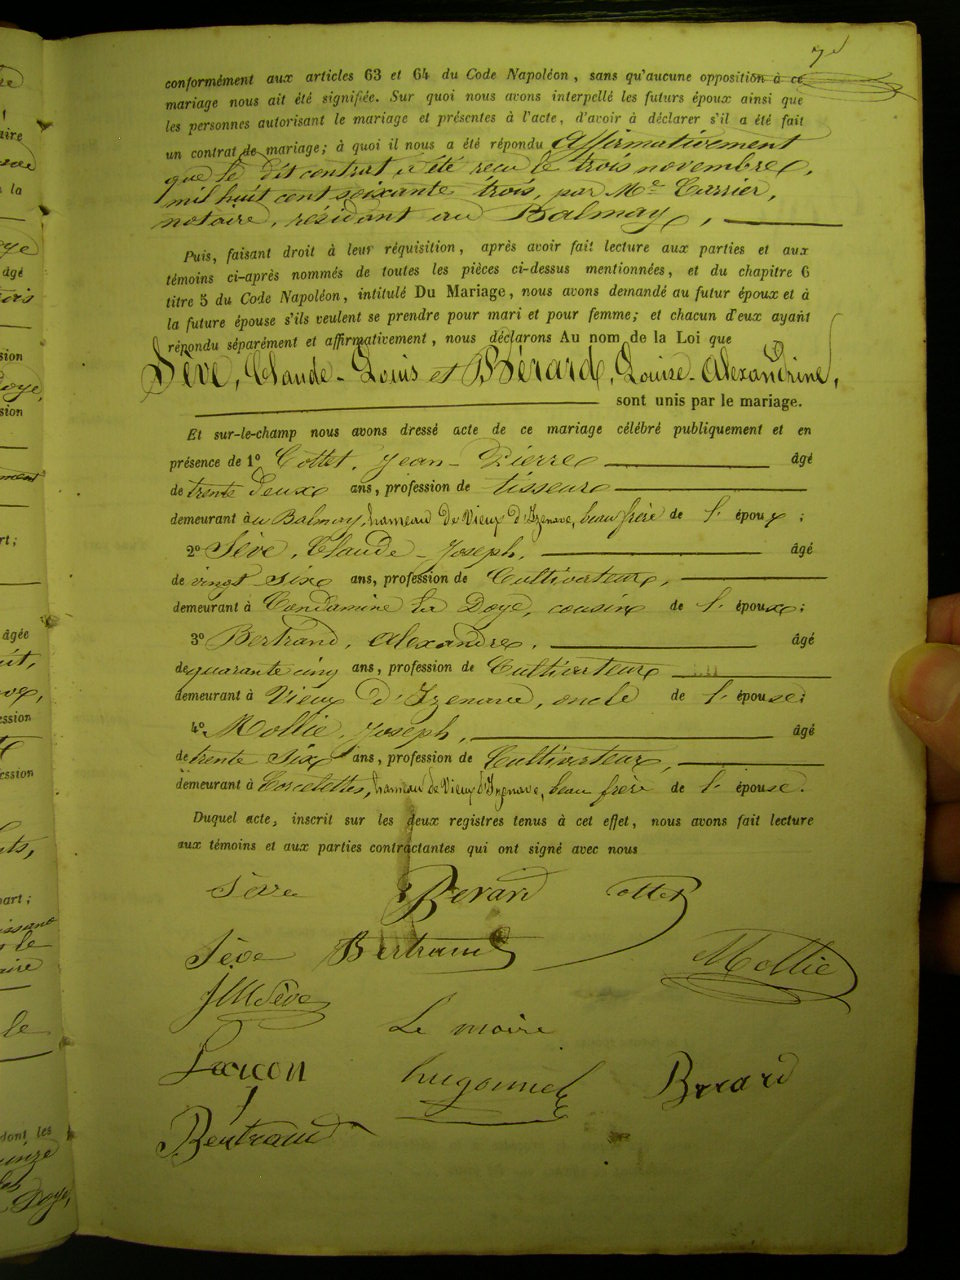 conformément aux articles 63 et 64 du Code Napoléon, sans qu'aucune opposition à ce
mariage nous ait été signifiée. Sur quoi nous avons interpellé les futurs époux ainsi que
les personnes autorisant le mariage et présentes à l'acte, d'avoir à déclarer s'il a été fait
un contrat de mariage; à quoi il nous a été répondu Affirmativement
que le dit contrat a été reçu le trois novembre,
mil huit cent soixante trois, par Me Carrier,
notaire, résidant au Balmay,
Puis, faisant droit à leur réquisition, après avoir fait lecture aux parties et aux
témoins ci-après nommés de toutes les pièces ci-dessus mentionnées, et du chapitre 6
titre 5 du Code Napoléon, intitulé Du Mariage, nous avons demandé au futur époux et à
la future épouse s'ils veulent se prendre pour mari et pour femme; et chacun d'eux ayant
répondu séparément et affirmativement, nous déclarons Au nom de la Loi que
Sève, Claude-Louis et Bérard, Louise-Alexandrine,
sont unis par le mariage.
Et sur-le-champ nous avons dressé acte de ce mariage célébré publiquement et en
présence de 1º Cottet, Jean-Pierre âgé
de trente deux ans, profession de tisseur
demeurant à u Balmay, hameau de Vieux d'Izenave, beau frère de l'époux;
2º Sève, Claude-Joseph, âgé
de vingt six ans, profession de Cultivateur,
demeurant à Condamine la Doye, cousin de l'époux;
3º Bertrand, Alexandre, âgé
de quarante cinq ans, profession de Cultivateur
demeurant à Vieux d'Izenave, oncle de l'épouse;
4º Mollie, Joseph, âgé
de trente six ans, profession de Cultivateur,
demeurant à Corcelettes, hameau de Vieux d'Izenave, beau frère de l'épouse.
Duquel acte, inscrit sur les deux registres tenus à cet effet, nous avons fait lecture
aux témoins et aux parties contractantes qui ont signé avec nous
Bérard Cottet
Sève Bertrand Mollie
JM Sève
Le maire
hugonnet Berard
Bertrand